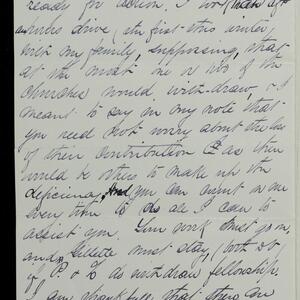 ready for action. I
drive (the first this winter
with my family, supposing that
at the most one or two of the
churches would withdraw & I
meant to say in my note that
you need not worry about the loss
of their contribution as there
would be others to make up the
deficiency, and you can count on me
every time to do all I can to
assist you. Your work must go on,
and Gillette must stay, both
of P. & to do withdraw fellowship.
I am thankful that there are